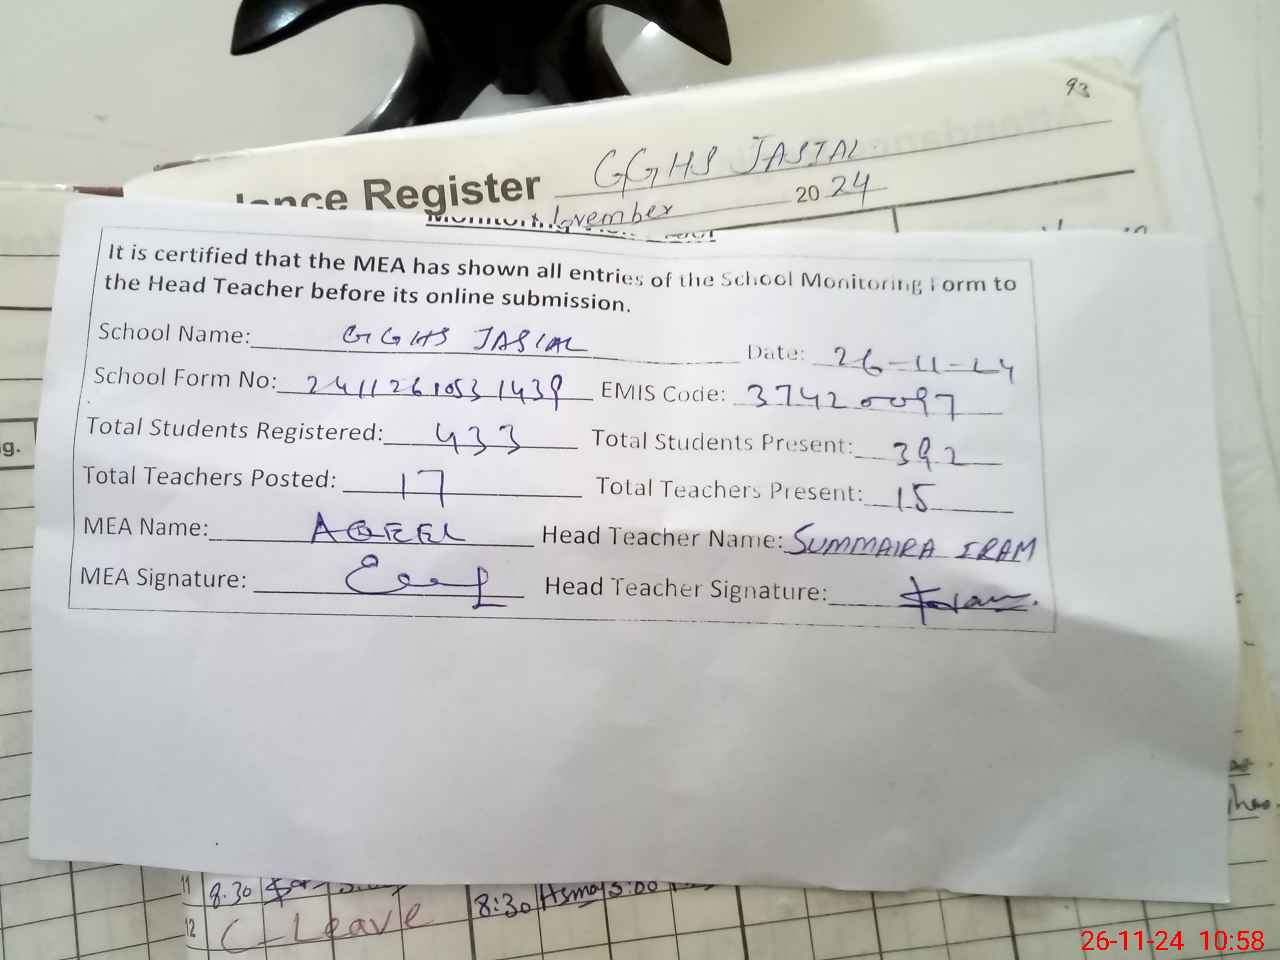 93
Register GGHS JASIAL
November 2024
It is certified that the MEA has shown all entries of the School Monitoring Form to
the Head Teacher before its online submission.
School Name: GGHS JASIAL Date: 26-11-24
School Form No: 24112610531439 EMIS Code: 37420097
Total Students Registered: 433 Total Students Present: 392
Total Teachers Posted: 17 Total Teachers Present: 15
MEA Name: AQEEL Head Teacher Name: SUMMAIRA IRAM
MEA Signature: Head Teacher Signature:
g.
11 8.30 8:30 Asma 3:00
12 C-Leave
26-11-24 10:58